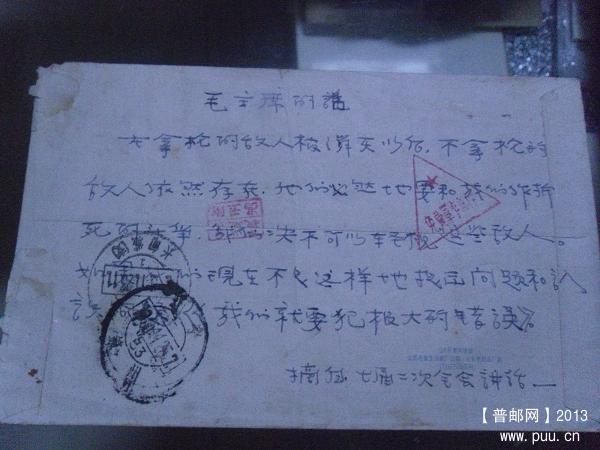 毛主席的話
在拿枪的敌人被消灭以后，不拿枪的
敌人依然存在，他们必然地要和我们作拚
死的斗争，我们决不可以轻视这些敌人。
如 们现在不是这样地提出问题和认
识 我们就要犯极大的错误》
摘自七届二次全会讲话
【普邮网】2013
www.puu.cn